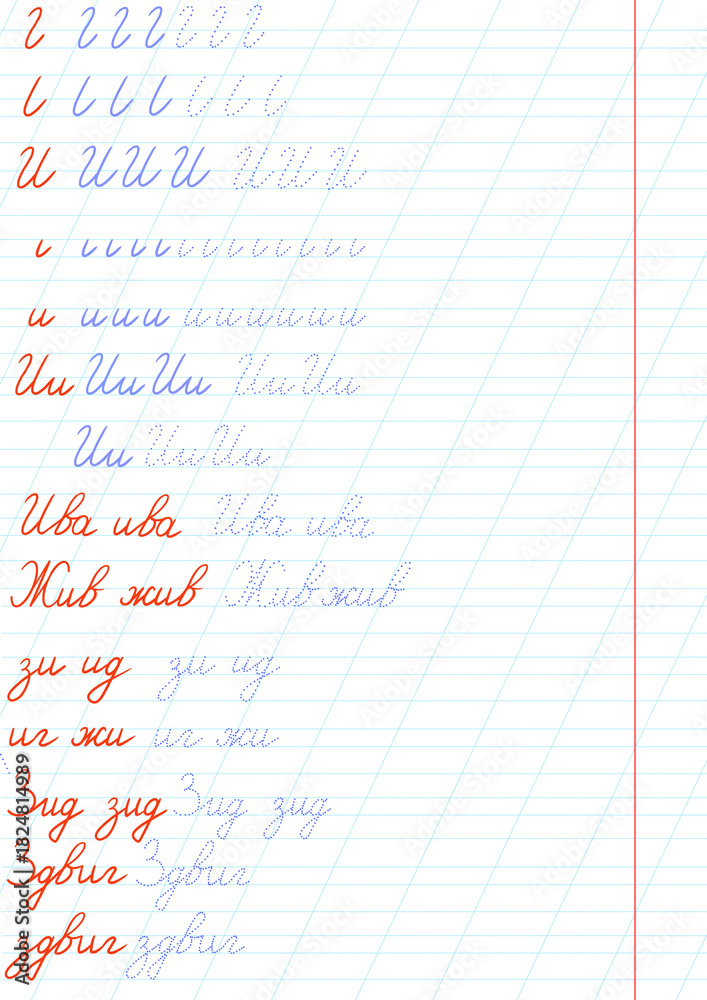 И И И И И И И
Ии Ии Ии Ии Ии
и и и и и и и и и
Ии Ии Ии
Ива ива Ива ива
Жив жив Жив жив
зи ид зи ид
иг жи иг жи
Зид зид Зид зид
Здвиг Здвиг
здвиг здвиг
Adobe Stock | #1824814989